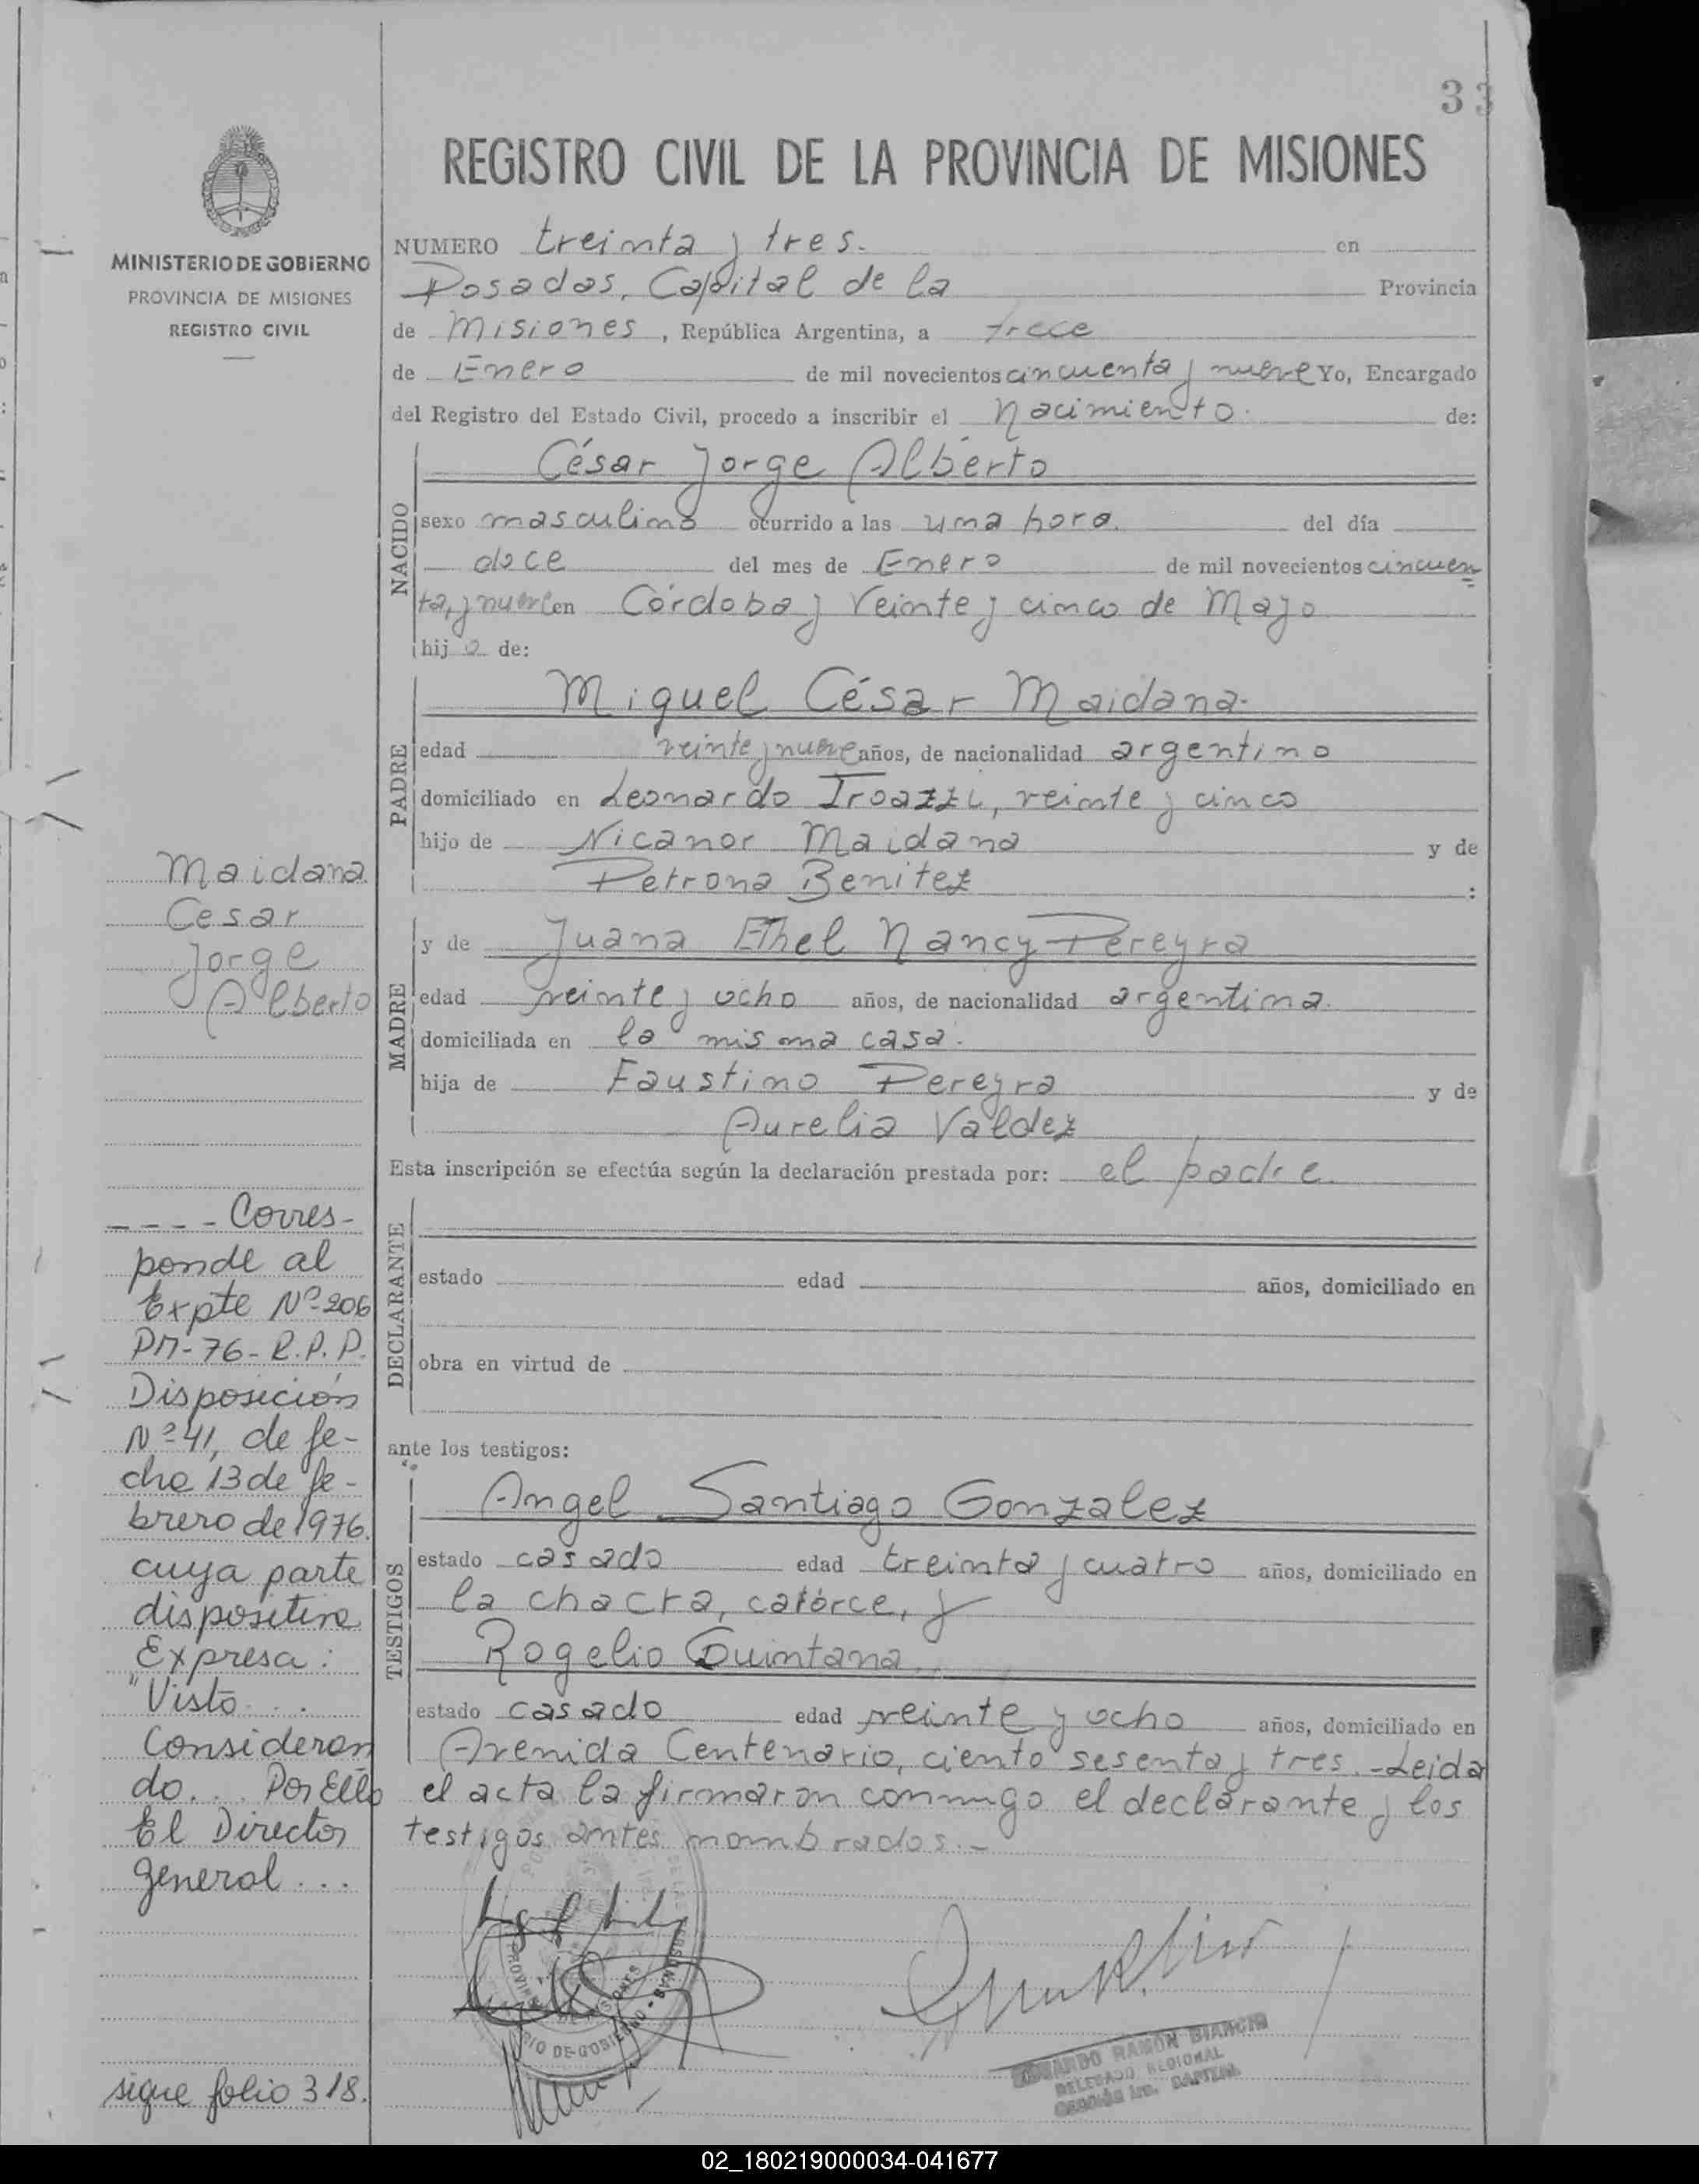 33
REGISTRO CIVIL DE LA PROVINCIA DE MISIONES
MINISTERIO DE GOBIERNO
PROVINCIA DE MISIONES
REGISTRO CIVIL
NUMERO treinta y tres.- en
Posadas, Capital de la Provincia
de Misiones, República Argentina, a trece
de Enero de mil novecientos cincuenta y nueve Yo, Encargado
del Registro del Estado Civil, procedo a inscribir el Nacimiento. de:
NACIDO
César Jorge Alberto
sexo masculino ocurrido a las una hora. del día
doce del mes de Enero de mil novecientos cincuen
ta, y nueve en Córdoba y Veinte y cinco de Mayo
hijo de:
PADRE
Miguel César Maidana.
edad veinte y nueve años, de nacionalidad argentino
domiciliado en Leonardo veinte y cinco
hijo de Nicanor Maidana y de
Petrona Benitez :
MADRE
y de Juana Ethel Nancy Pereyra
edad veinte y ocho años, de nacionalidad argentina.
domiciliada en la misma casa.
hija de Faustino Pereyra y de
Aurelia Valdez
Esta inscripción se efectúa según la declaración prestada por: el padre.
DECLARANTE
estado edad años, domiciliado en
obra en virtud de
ante los testigos:
TESTIGOS
Angel Santiago Gonzalez
estado casado edad treinta y cuatro años, domiciliado en
la chacra, catórce, y
Rogelio Quintana
estado casado edad veinte y ocho años, domiciliado en
Avenida Centenario, ciento sesenta y tres.-Leida
el acta la firmaron conmigo el declarante y los
testigos antes nombrados.-
Maidana
Cesar
Jorge
Alberto
---- Corres-
ponde al
Expte Nº-206
PM-76-R.P.P.
Disposición
Nº 41, de fe-
cha 13 de fe-
brero de 1976.
cuya parte
dispositiva
Expresa:
"Visto...
Consideran
do... Por Ello
El Director
general...
sigue folio 318.
EDUARDO RAMÓN BIANCHI
DELEGADO REGIONAL
Sección 1ra. CAPITAL
02_180219000034-041677